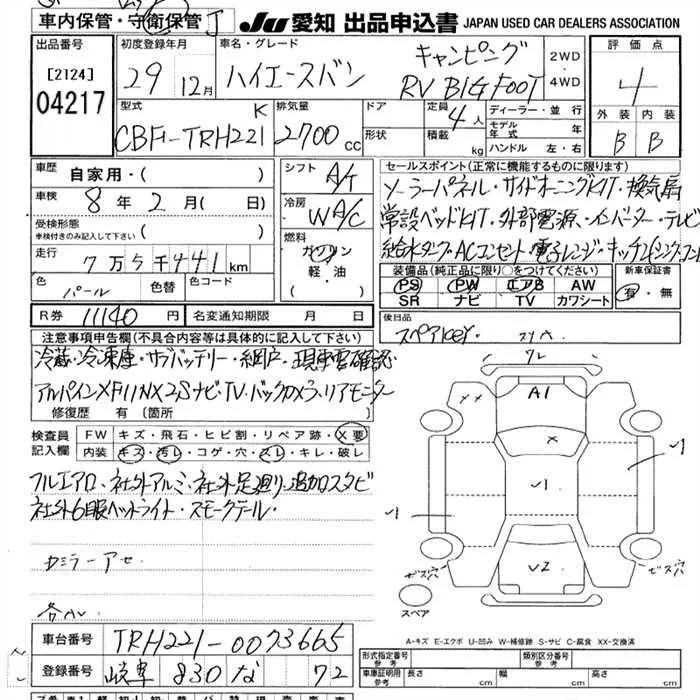 車内保管・守衛保管 JU 愛知 出品申込書 JAPAN USED CAR DEALERS ASSOCIATION
出品番号 初度登録年月 車名・グレード 評価点
[2124] 29 12月 ハイエースバン キャンピング 2WD・
04217 RV BIG FOOT 4WD 4
型式 K 排気量 ドア 定員 4人 ディーラー・並行 外装 内装
CBF-TRH221 2700cc 形状 積載 kg モデル年式 年 ハンドル 左・右 B B
車歴 自家用・( ) シフト A/T セールスポイント(正常に機能するものに限ります)
車検 8年2月( 日) 冷房 WA/C ソーラーパネル・サイドオーニングKIT・換気扇
受検形態 ※検付きのみ記入して下さい ( ) 燃料 常設ベッドKIT・外部電源・インバーター・テレビ
走行 7万5千441km ガソリン・軽油 給水タンク・ACコンセント・電子レンジ・キッチン
色 パール 色替 色コード 装備品(純正品に限り○をつけてください) 新車保証書
PS PW エアB AW 有・無
SR ナビ TV カワシート
R券 11140円 名変通知期限 月 日 後日品
スペアkey・
注意事項申告欄(不具合内容等は具体的に記入して下さい)
冷蔵・冷凍庫・サブバッテリー・網戸・現車要確認
アルパインXF11NX2Sナビ・TV・バックカメラ・リアモニター
修復歴 有(箇所
検査員 FW キズ・飛石・ヒビ割・リペア跡・X要
記入欄 内装 キズ・汚レ・コゲ・穴・スレ・キレ・破レ
フルエアロ、社外アルミ、社外足廻り、追加スタビ
社外6眼ヘッドライト・スモークテール・
カミラーアセ
ワレ
A1
××
×
√1
√1
√1
√2
ビス穴
ビス穴
スペア
A-キズ E-エクボ U-凹み W-補修跡 S-サビ C-腐食 XX-交換済
車台番号 TRH221-0073665 形式指定番号 参考 類別区分番号 参考
登録番号 岐阜 830 な 72 車庫証明用 参考 長さ cm 幅 cm 高さ cm